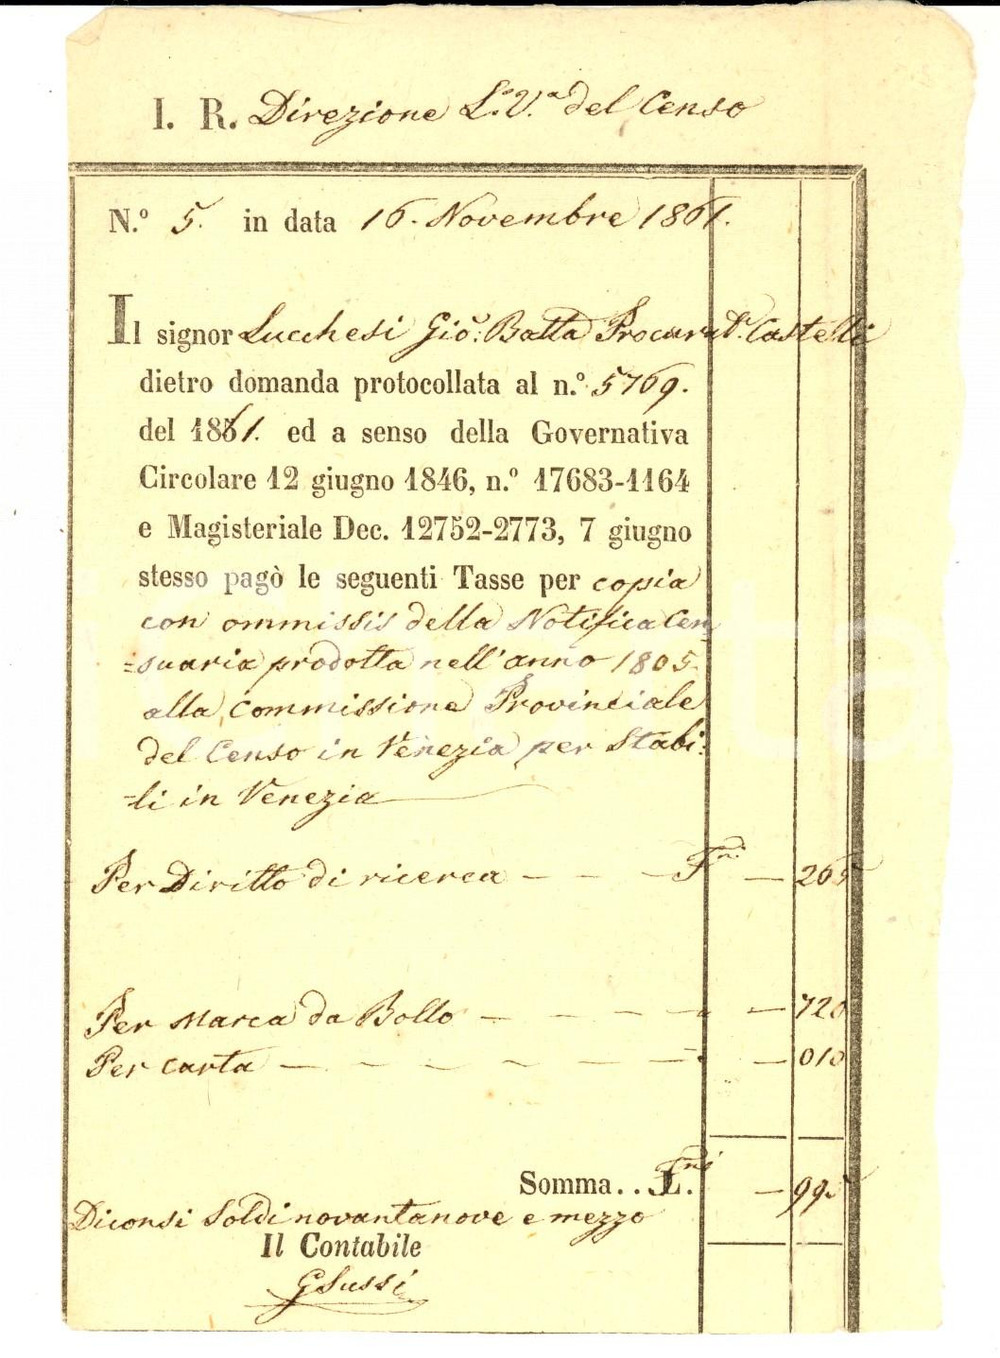 I. R. Direzione L.V.a del Censo
N.º 5. in data 16. Novembre 1861.
Il signor Lucchesi Gio: Batta Procurat.r Castelli
dietro domanda protocollata al n.º 5769.
del 1861. ed a senso della Governativa
Circolare 12 giugno 1846, n.º 17683-1164
e Magisteriale Dec. 12752-2773, 7 giugno
stesso pagò le seguenti Tasse per copia
con ommissis della Notifica Cen
=suaria prodotta nell'anno 1805.
alla Commissione Provinciale
del Censo in Venezia per Stabi:
=li in Venezia
Per Diritto di ricerca - - - F.ni - 265
Per Marca da Bollo - - - - - - 720
Per carta - - - - - - - - 010
Somma . . F.ni - 995
Diconsi Soldi novantanove e mezzo
Il Contabile
GSussi